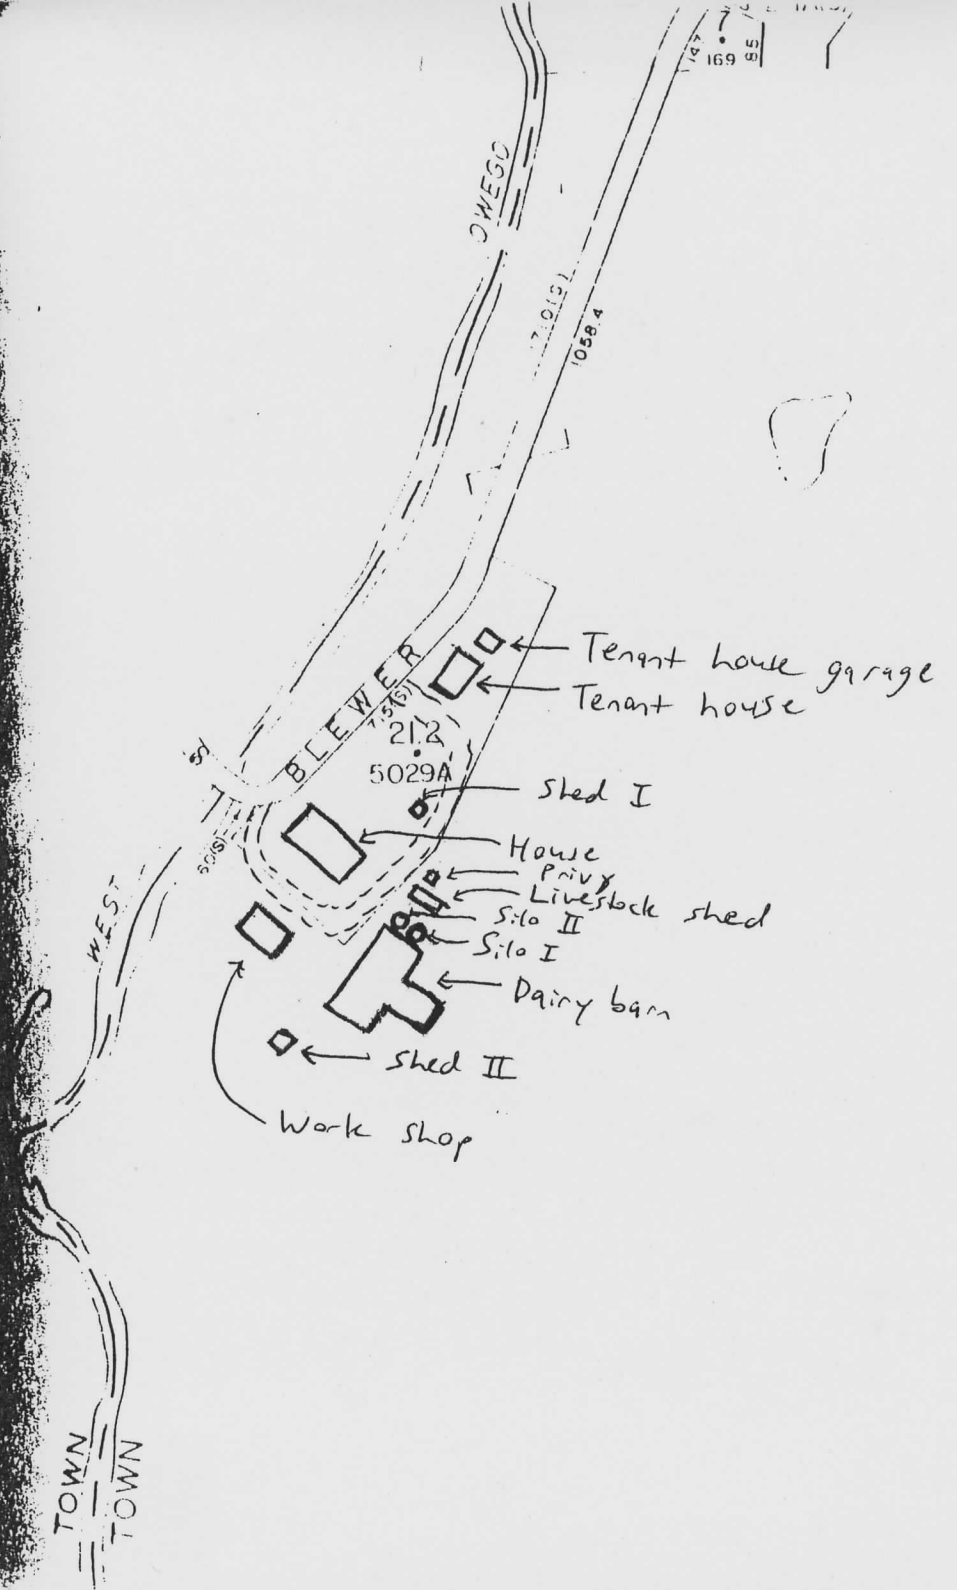 169
85
OWEGO
1058.4
BLEWER
7.5(S)
21.2
5029A
Tenant house garage
Tenant house
Shed I
House
Privy
Livestock shed
Silo II
Silo I
Dairy barn
Shed II
Work shop
WEST
TOWN
TOWN